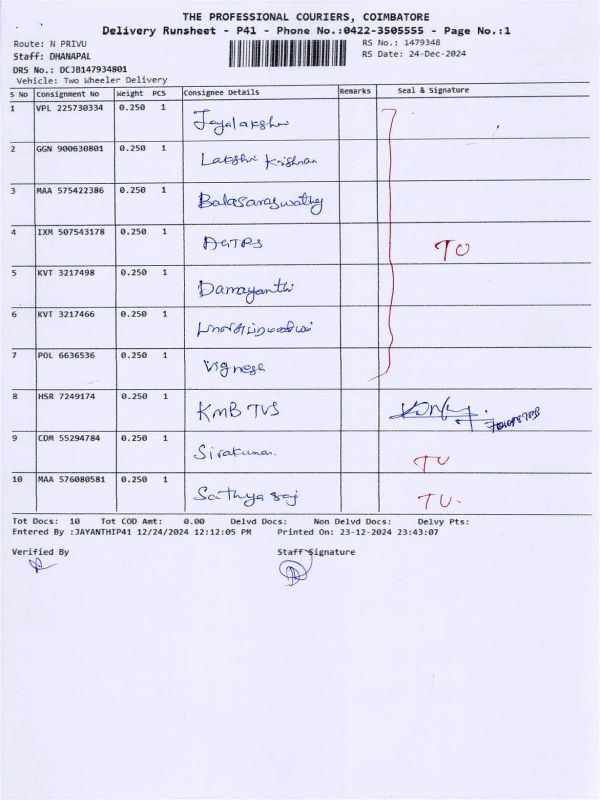 THE PROFESSIONAL COURIERS, COIMBATORE
Delivery Runsheet - P41 - Phone No.:0422-3505555 - Page No.:1
Route: N PRIVU RS No.: 1479348
Staff: DHANAPAL RS Date: 24-Dec-2024
DRS No.: DCJB147934801
Vehicle: Two Wheeler Delivery
S No Consignment No Weight PCS Consignee Details Remarks Seal & Signature
1 VPL 225730334 0.250 1 Jayalakshmi
2 GGN 900630801 0.250 1 Lakshmi Krishnan
3 MAA 575422386 0.250 1 Balasaraswathy
4 IXM 507543178 0.250 1 TO
5 KVT 3217498 0.250 1 Damayanthi
6 KVT 3217466 0.250 1
7 POL 6636536 0.250 1 Vignesh
8 HSR 7249174 0.250 1 KMB TVS
9 CDM 55294784 0.250 1 Sivakumar TU
10 MAA 576080581 0.250 1 Sathya raj TU.
Tot Docs: 10 Tot COD Amt: 0.00 Delvd Docs: Non Delvd Docs: Delvy Pts:
Entered By :JAYANTHIP41 12/24/2024 12:12:05 PM Printed On: 23-12-2024 23:43:07
Verified By Staff Signature